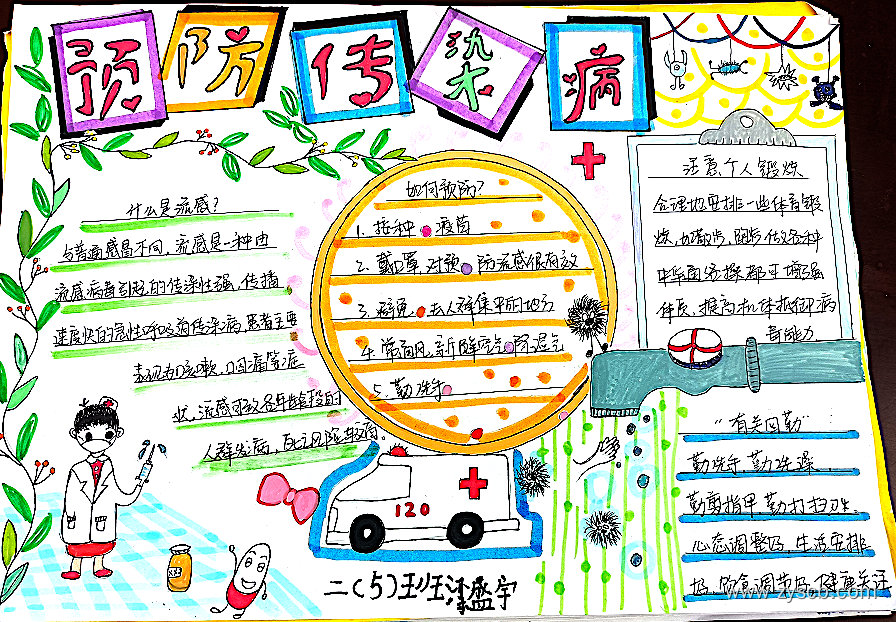 预防传染病
什么是流感?
与普通感冒不同,流感是一种由
流感病毒引起的传染性强,传播
速度快的急性呼吸道传染病,患者主要
表现为咳嗽、口因痛等症
状,流感可致各年龄段的
人群发病,
如何预防?
1. 接种 疫苗
2. 戴口罩,对预 防流感很有效
3. 避免 去人群集中的地方
4. 常通风,新鲜空气
5. 勤洗手
注意个人锻炼
合理地安排一些体育锻
炼,如散步、跑步、做各种
体质,提高机体抵御病
毒能力.
120
"有关四勤"
勤洗手 勤洗澡、
勤剪指甲 勤打扫卫生.
心态调整好,生活安排
好,饮食调节好,健康关注
二(5)班 盛宇
www.zyscb.com